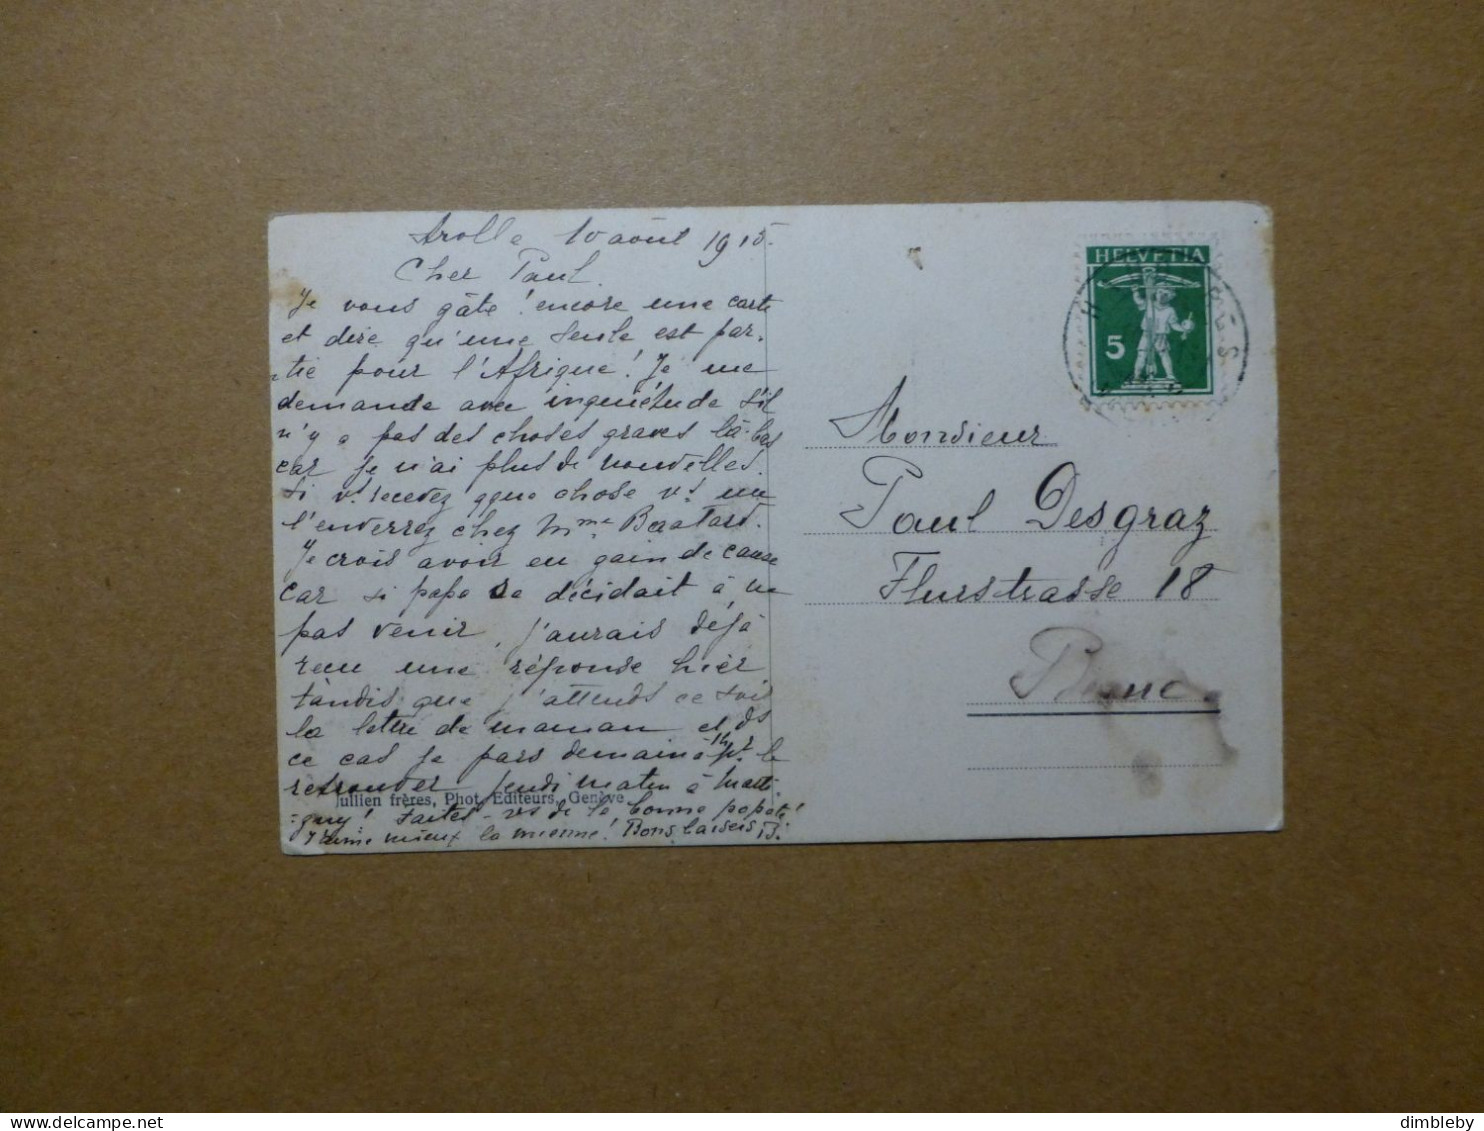 Arolla 10 août 1915.
Cher Paul.
Je vous gâte! encore une carte
et dire qu'une seule est par-
tie pour l'Afrique! Je me
demande avec inquiétude s'il
n'y a pas des choses graves là-bas
car je n'ai plus de nouvelles.
Si vs recevez qque chose vs
l'enverrez chez Mme Bastard.
Je crois avoir eu gain de cause
car si papa se décidait à ne
pas venir, j'aurais déjà
reçu une réponse hier
tandis que j'attends ce soir
la lettre de maman et ds
ce cas je pars demain à 1h pr le
retrouver jeudi matin à Marti-
gny! Faites-vs de la bonne popote!
J'aime mieux la mienne! Bons baisers
Jullien frères, Phot. Editeurs, Genève
HELVETIA
5
Monsieur
Paul Desgraz
Flurstrasse 18
Bienne
dimbleby
www.delcampe.net